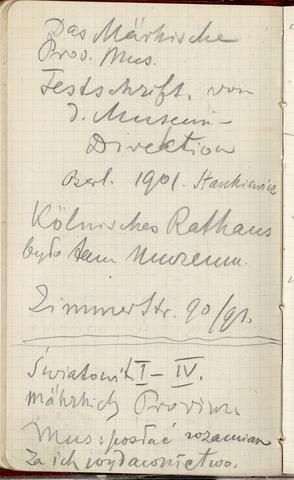 Das Märkische
Prov. Mus.
Festschrift. von
d. Museum-
Direktion
Berl. 1901. Stankiewicz
Kölnisches Rathaus
było tem Muzeum.
Zimmerstr. 90/91.
Światowit I–IV.
märkisch Provinz.
Mus: posłać w zamian
za ich wydawnictwo.